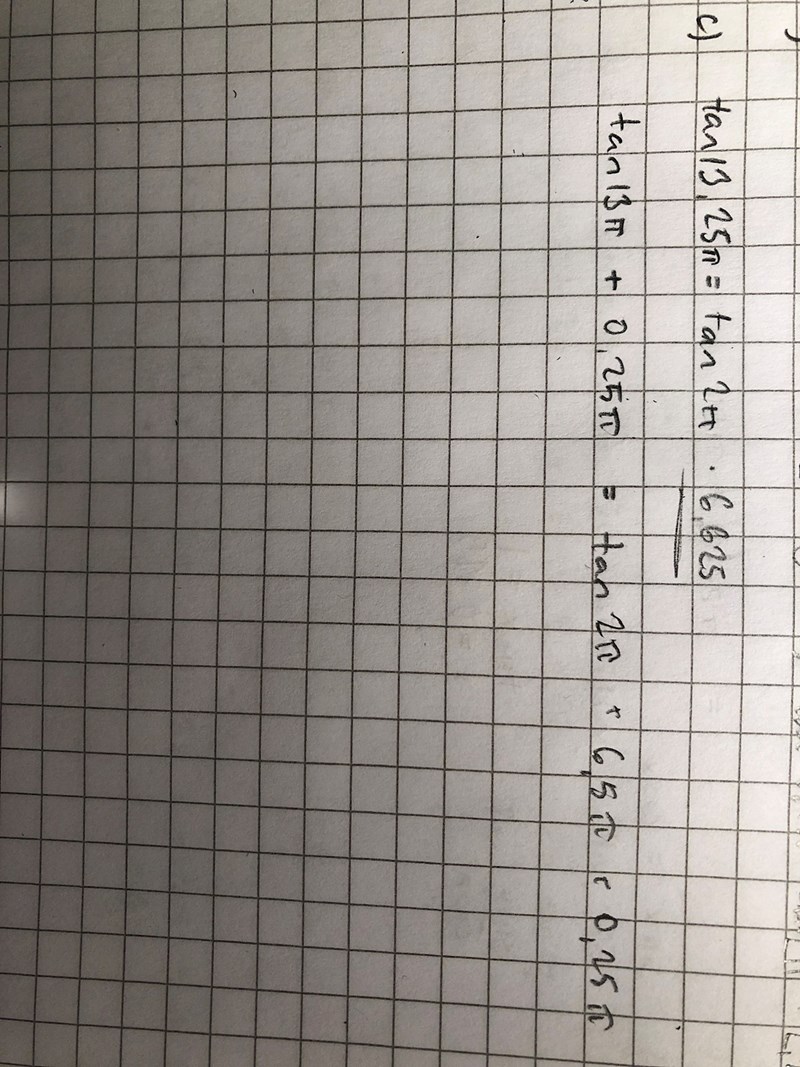 c) tan 13,25π = tan 2π · 6,625
tan 13π + 0,25π = tan 2π + 6,5π + 0,25π